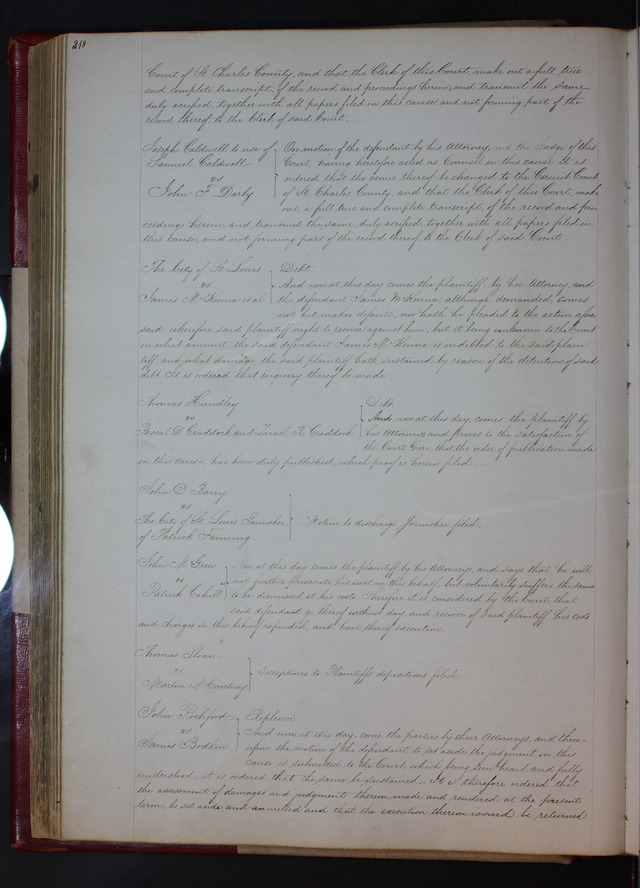 218
Court of St Charles County, and that the Clerk of this Court, make out a full true
and complete transcript, of the record and proceedings herein, and transmit the same
duly verified, together with all papers filed in this cause and not forming part of the
record thereof, to the Clerk of said Court.
Joseph Caldwell to use of
Samuel Caldwell
vs
John F. Darby
On motion of the defendant by his Attorney, and the Judge of this
Court having heretofore acted as Counsel in this cause It is
ordered that the venue thereof be changed to the Circuit Court
of St Charles County, and that the Clerk of this Court, make
out, a full true and complete transcript, of the record and pro
ceedings herein, and transmit the same, duly verified, together with all papers filed in
this cause, and not forming part of the record thereof, to the Clerk of said Court.
The City of St Louis
vs
James McKenna et al
Debt.
And now at this day comes the plaintiff, by her Attorney, and
the defendant James McKenna, although demanded, comes
not but makes default, nor hath he pleaded to the action afore
said, wherefore said plaintiff ought to recover against him, but it being unknown to the Court
in what amount, the said defendant James McKenna is indebted to the said plain-
tiff and what damage, the said plaintiff hath sustained by reason of the detention of said
debt It is ordered that enquiry thereof be made
Thomas Hundley
vs
Pascal D Craddock and Israel R. Craddock
Debt.
And now at this day comes the plaintiff by
his Attorney, and proves to the satisfaction of
the Court here, that the order of publication made
in this cause, has been duly published, which proof is herein filed.
John D. Barry
vs
The City of St Louis Garnishee
of Patrick Fanning
Motion to discharge Garnishee filed.
John M. Gren
vs
Patrick Cahill
Now at this day comes the plaintiff by his Attorney, and says that he will
not further prosecute his suit in this behalf, but voluntarily suffers the same
to be dismissed at his costs Therefore it is considered by the Court, that
said defendant go thereof without day, and recover of said plaintiff his costs
and charges in this behalf expended, and have thereof execution.
Thomas Sloan
vs
Martin McCourtney
Exceptions to Plaintiffs depositions filed
John Rochford
vs
James Bodkin
Replevin
And now at this day come the parties by their Attorneys, and there-
upon the motion of the defendant to set aside the judgment in this
cause, is submitted to the Court which being seen heard and fully
understood, it is ordered that the same be sustained. It is therefore ordered that
the assessment of damages and judgment thereon made and rendered at the present
term, be set aside and annulled and that the execution thereon issued be returned